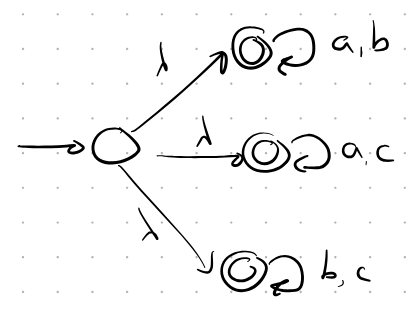 λ a, b
λ a, c
λ b, c